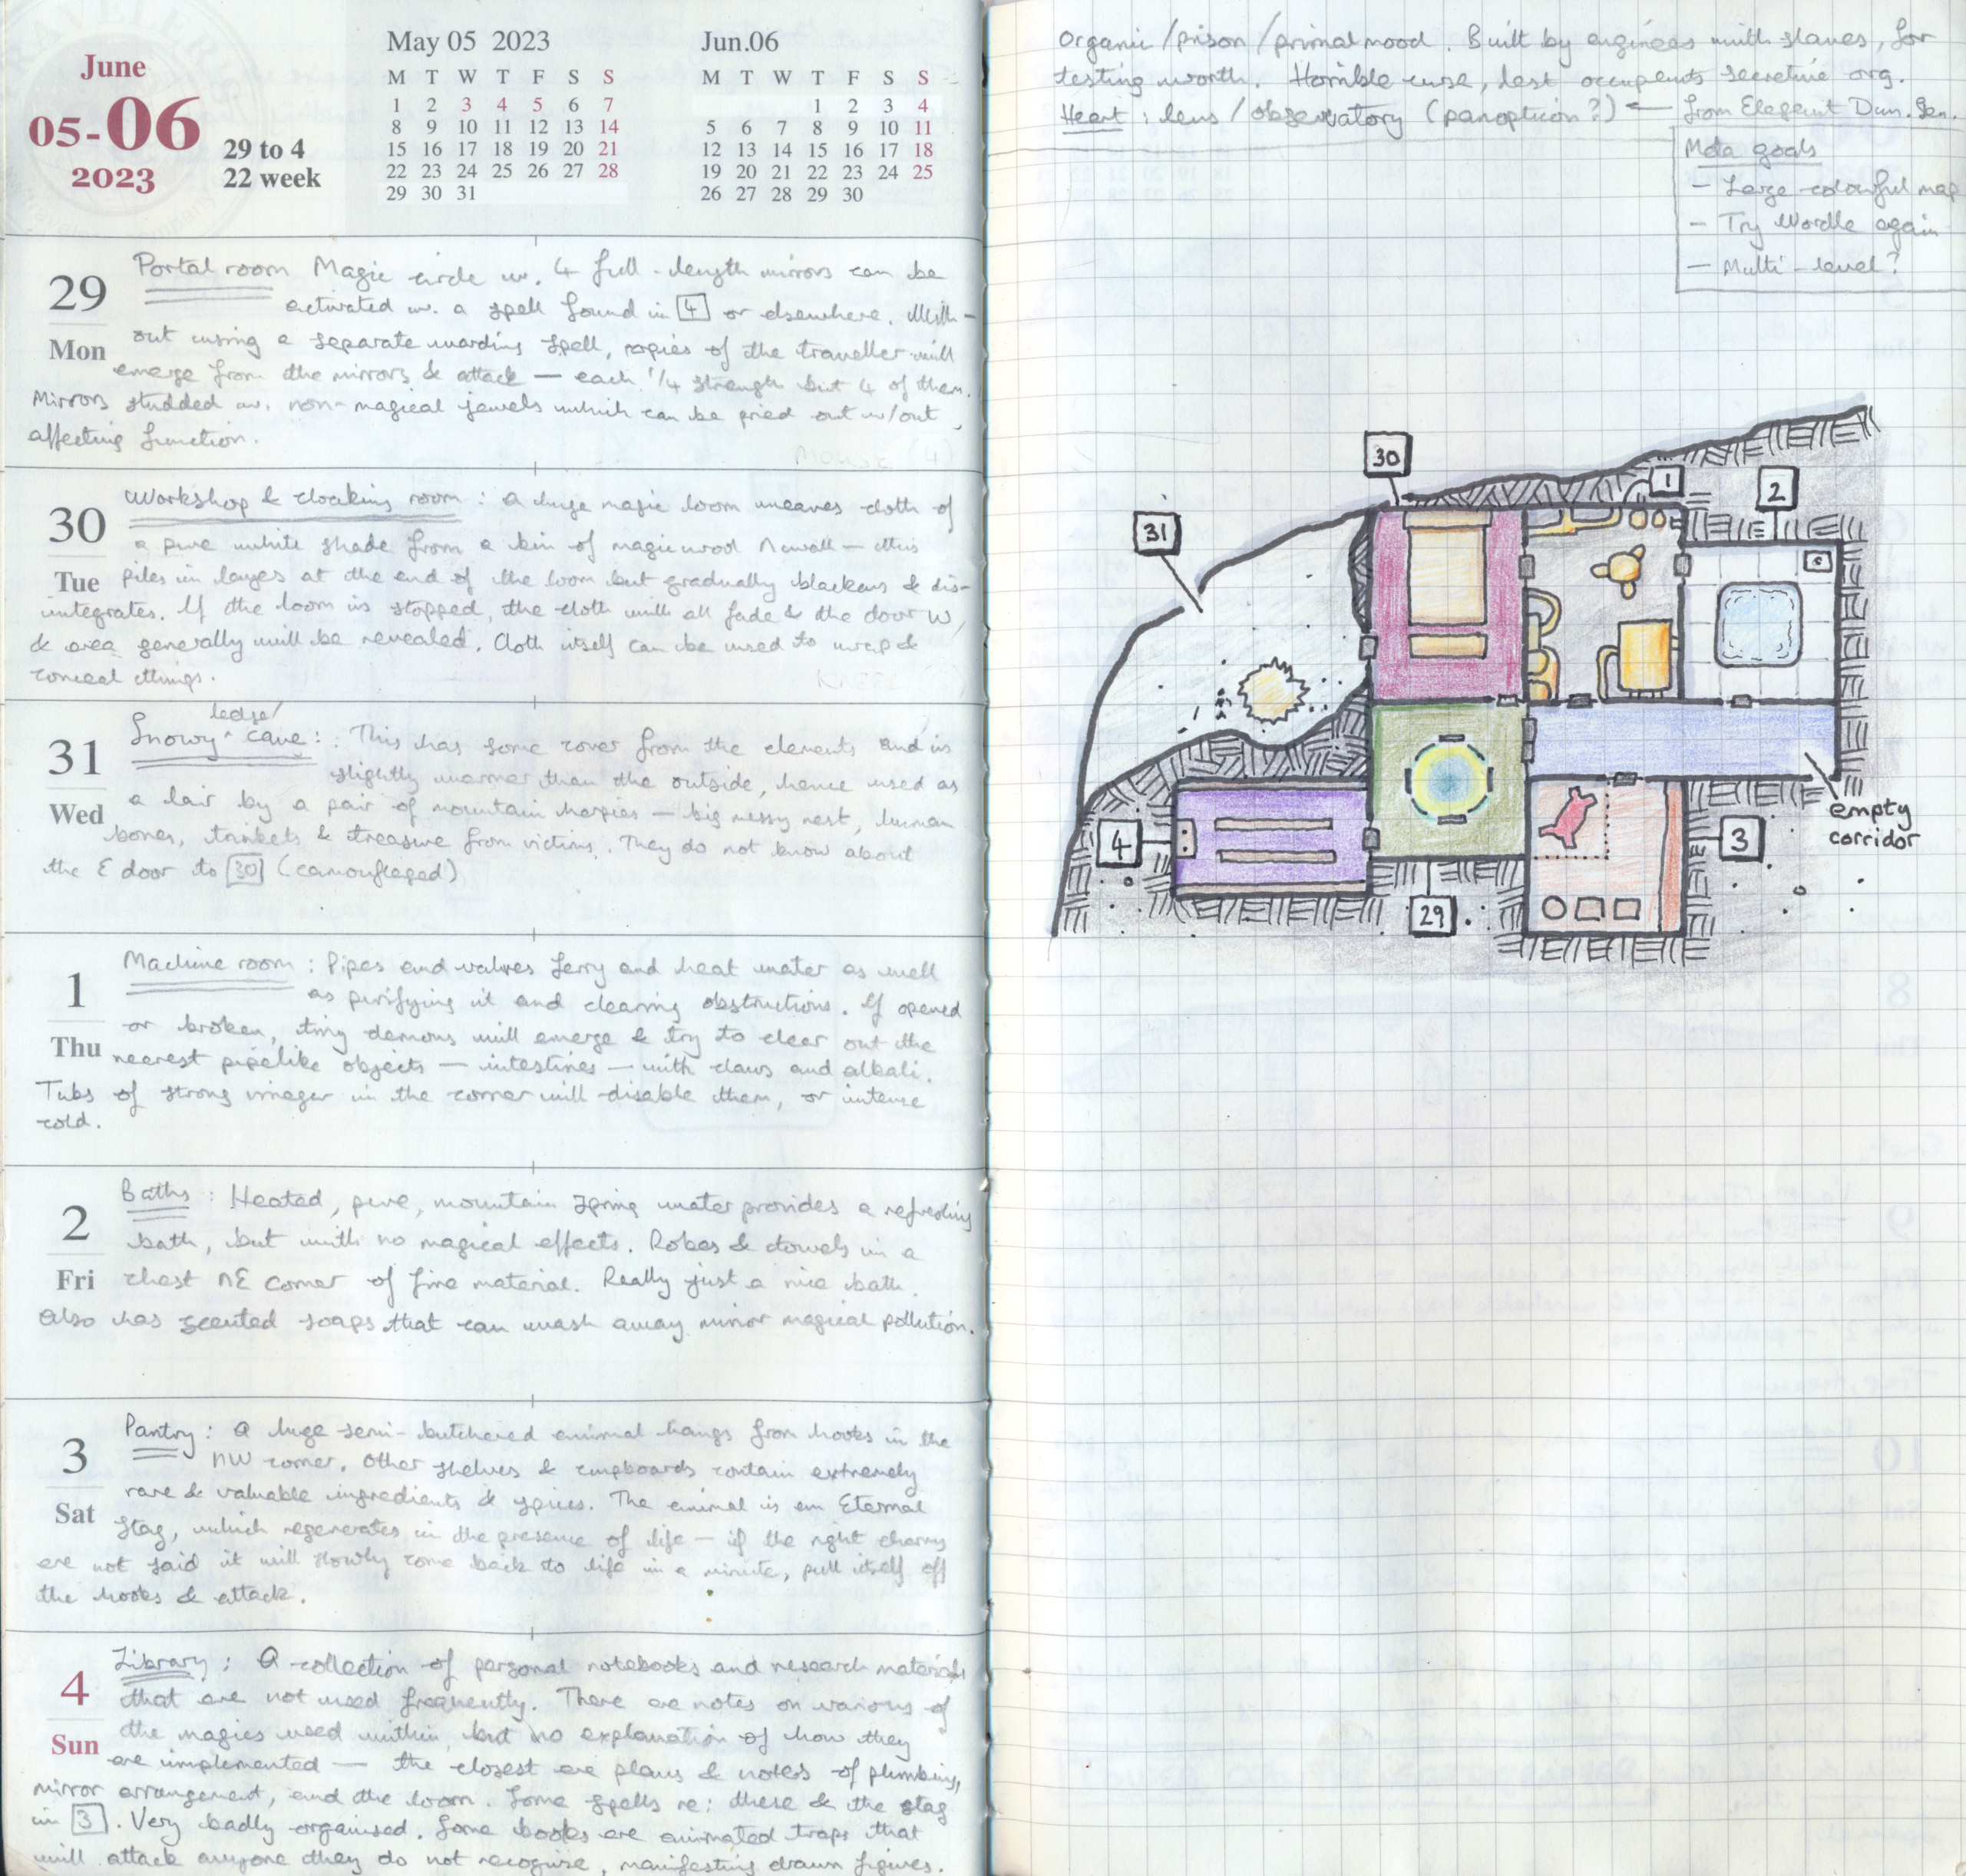 June
05-06
2023
29 to 4
22 week
May 05 2023
M T W T F S S
1 2 3 4 5 6 7
8 9 10 11 12 13 14
15 16 17 18 19 20 21
22 23 24 25 26 27 28
29 30 31
Jun.06
M T W T F S S
1 2 3 4
5 6 7 8 9 10 11
12 13 14 15 16 17 18
19 20 21 22 23 24 25
26 27 28 29 30
29
Mon
Portal room Magic circle w. 4 full-length mirrors can be
activated w. a spell found in 4 or elsewhere. With-
out using a separate warding spell, copies of the traveller will
emerge from the mirrors & attack — each 1/4 strength but 4 of them.
Mirrors studded w. non-magical jewels which can be pried out w/out
affecting function.
30
Tue
Workshop & cloaking room : a huge magic loom weaves cloth of
a pure white shade from a bin of magic wool N wall — this
piles in layers at the end of the loom but gradually blackens & dis-
integrates. If the loom is stopped, the cloth will all fade & the door W
& area generally will be revealed. Cloth itself can be used to wrap &
conceal things.
31
Wed
Snowy ledge/ cave : This has some cover from the elements and is
slightly warmer than the outside, hence used as
a lair by a pair of mountain harpies — big messy nest, human
bones, trinkets & treasure from victims. They do not know about
the E door to 30 (camouflaged)
1
Thu
Machine room : Pipes and valves ferry and heat water as well
as purifying it and clearing obstructions. If opened
or broken, tiny demons will emerge & try to clear out the
nearest pipelike objects — intestines — with claws and alkali.
Tubs of strong vinegar in the corner will disable them, or intense
cold.
2
Fri
Baths : Heated, pure, mountain spring water provides a refreshing
bath, but with no magical effects. Robes & towels in a
chest NE corner of fine material. Really just a nice bath.
Also has scented soaps that can wash away minor magical pollution.
3
Sat
Pantry : A huge semi-butchered animal hangs from hooks in the
NW corner. Other shelves & cupboards contain extremely
rare & valuable ingredients & spices. The animal is an Eternal
Stag, which regenerates in the presence of life — if the right charms
are not said it will slowly come back to life in a minute, pull itself off
the hooks & attack.
4
Sun
Library : A collection of personal notebooks and research materials
that are not used frequently. There are notes on various of
the magics used within, but no explanation of how they
are implemented — the closest are plans & notes of plumbing,
mirror arrangement, and the loom. Some spells re: these & the stag
in 3. Very badly organised. Some books are animated traps that
will attack anyone they do not recognise, manifesting drawn figures.
Organic/prison/primal mood. Built by engineers with slaves, for
testing worth. Horrible curse, last occupants secretive org.
Heart : lens/observatory (panopticon?) ← from Elegant Dun. Gen.
Meta goals
— Large colourful map
— Try Wordle again
— Multi-level?
30
1
2
31
4
29
3
empty
corridor